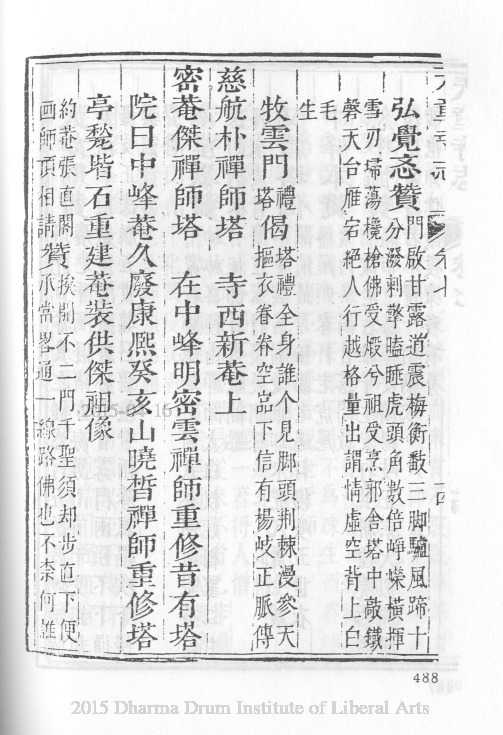 天童寺志 卷七 十四
弘覺忞贊門啟甘露道震梅衡數三脚驢風蹄十
分潑剌擎瞌睡虎頭角數倍崢嶸橫揮
雪刃埽蕩欃槍佛受煅兮祖受烹邪舍塔中敲鐵
磬天台雁宕絕人行越格量出謂情虛空背上白
毛
生
牧雲門禮塔偈塔禮全身誰个見腳頭荆棘漫參天
摳衣眷眷空嵓下信有楊岐正脈傳
慈航朴禪師塔 寺西新菴上
密菴傑禪師塔 在中峰明密雲禪師重修昔有塔
院曰中峰菴久廢康熙癸亥山曉晳禪師重修塔
亭甃堦石重建菴裝供傑祖像
約菴張直閣画師頂相請贊挨開不二門千聖須却步直下便
承當畧通一線路佛也不柰何誰
488
2015 Dharma Drum Institute of Liberal Arts